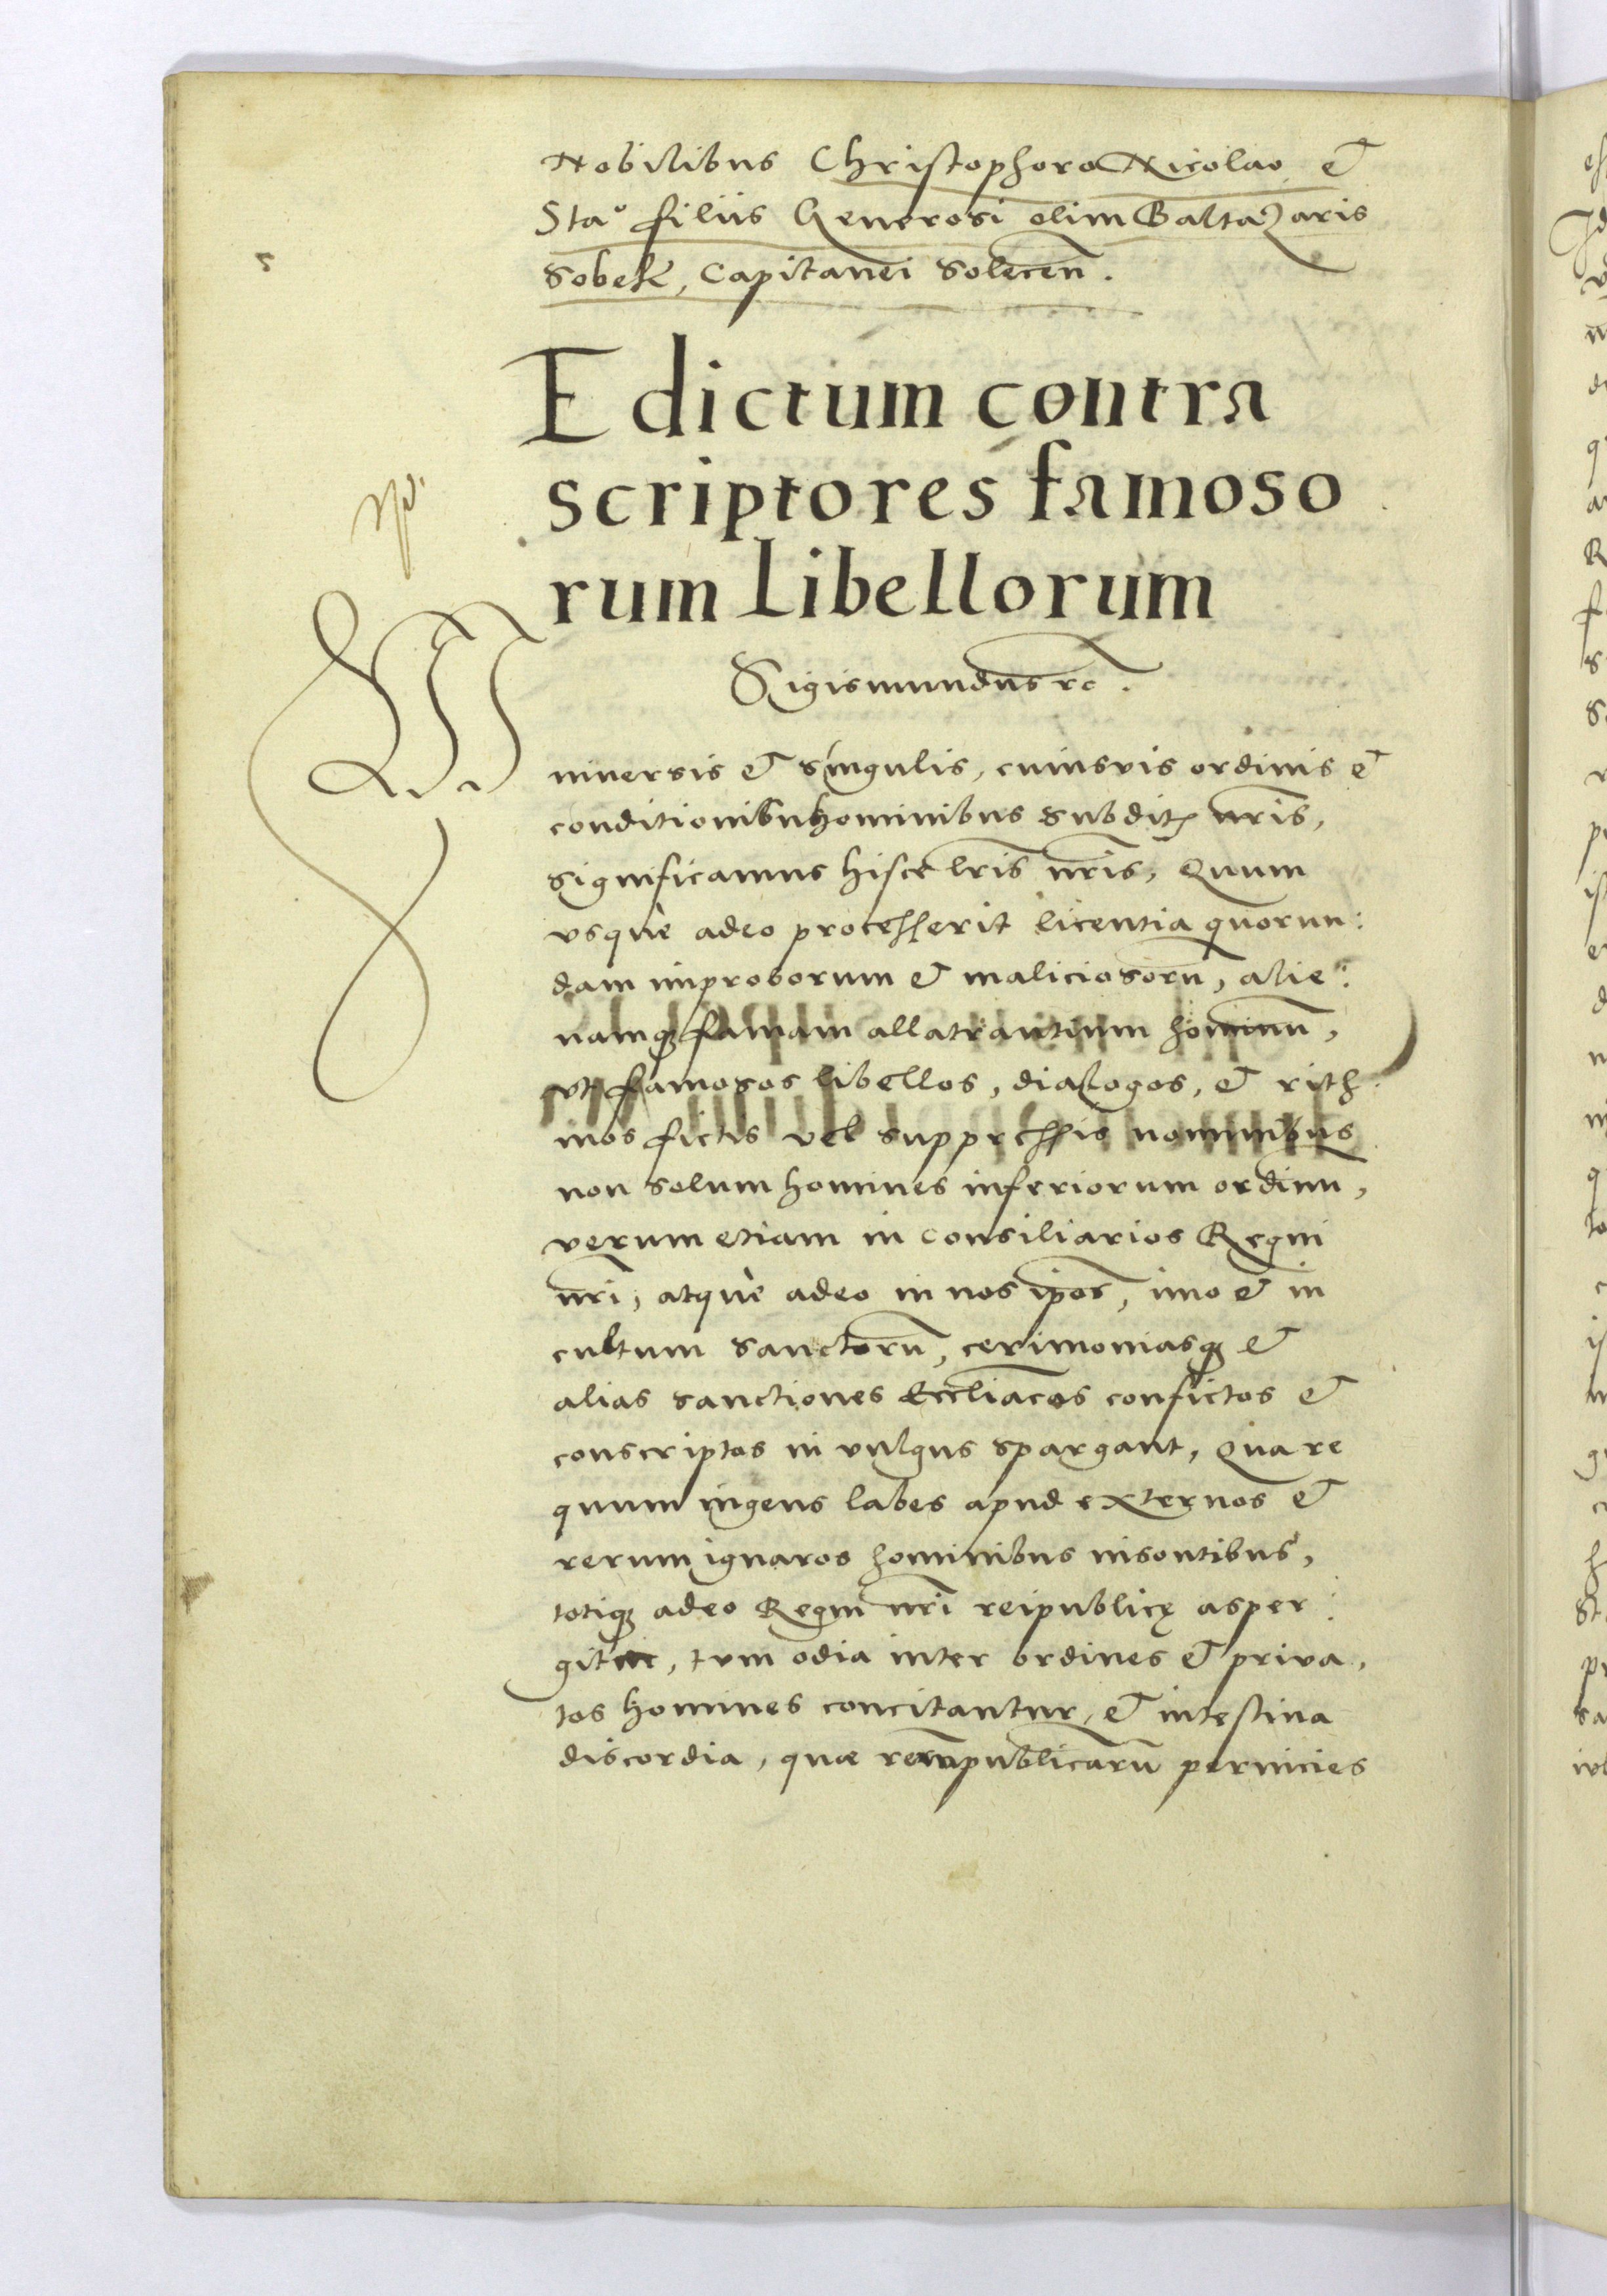 Nobilibus Christophoro Nicolao et
Stao filiis Generosi olim Baltazaris
Sobek, Capitanei Solecen̄.
Edictum contra
scriptores famoso
rum Libellorum
Sigismundus rc.
Vniuersis et singulis, cuiusvis ordinis et
conditionibu hominibus subdit nr̄is,
significamus hisce lr̄is nr̄is, Quum
vsque adeo processerit licentia quorun:
dam improborum et maliciosorū, alie:
namq famam allatrantium hominū,
vt famosos libellos, dialogos, et rith:
mos fictis vel suppressis nominibus
non solum homines inferiorum ordinu,
verum etiam in Consiliarios Regni
nr̄i, atque adeo in nos ip̄os, imo et in
cultum sanctorū, cerimoniasq et
alias sanctiones Eccl̄iacas confictos et
conscriptos in vulgus spargant, Qua re
quum ingens labes apud externos et
rerum ignaros hominibus insontibus,
totiq adeo Regni nr̄i reipublicę asper:
gitur, tum odia inter ordines et priua,
tos homines concitantur, et intestina
discordia, quæ rerumpublicarū pernicies